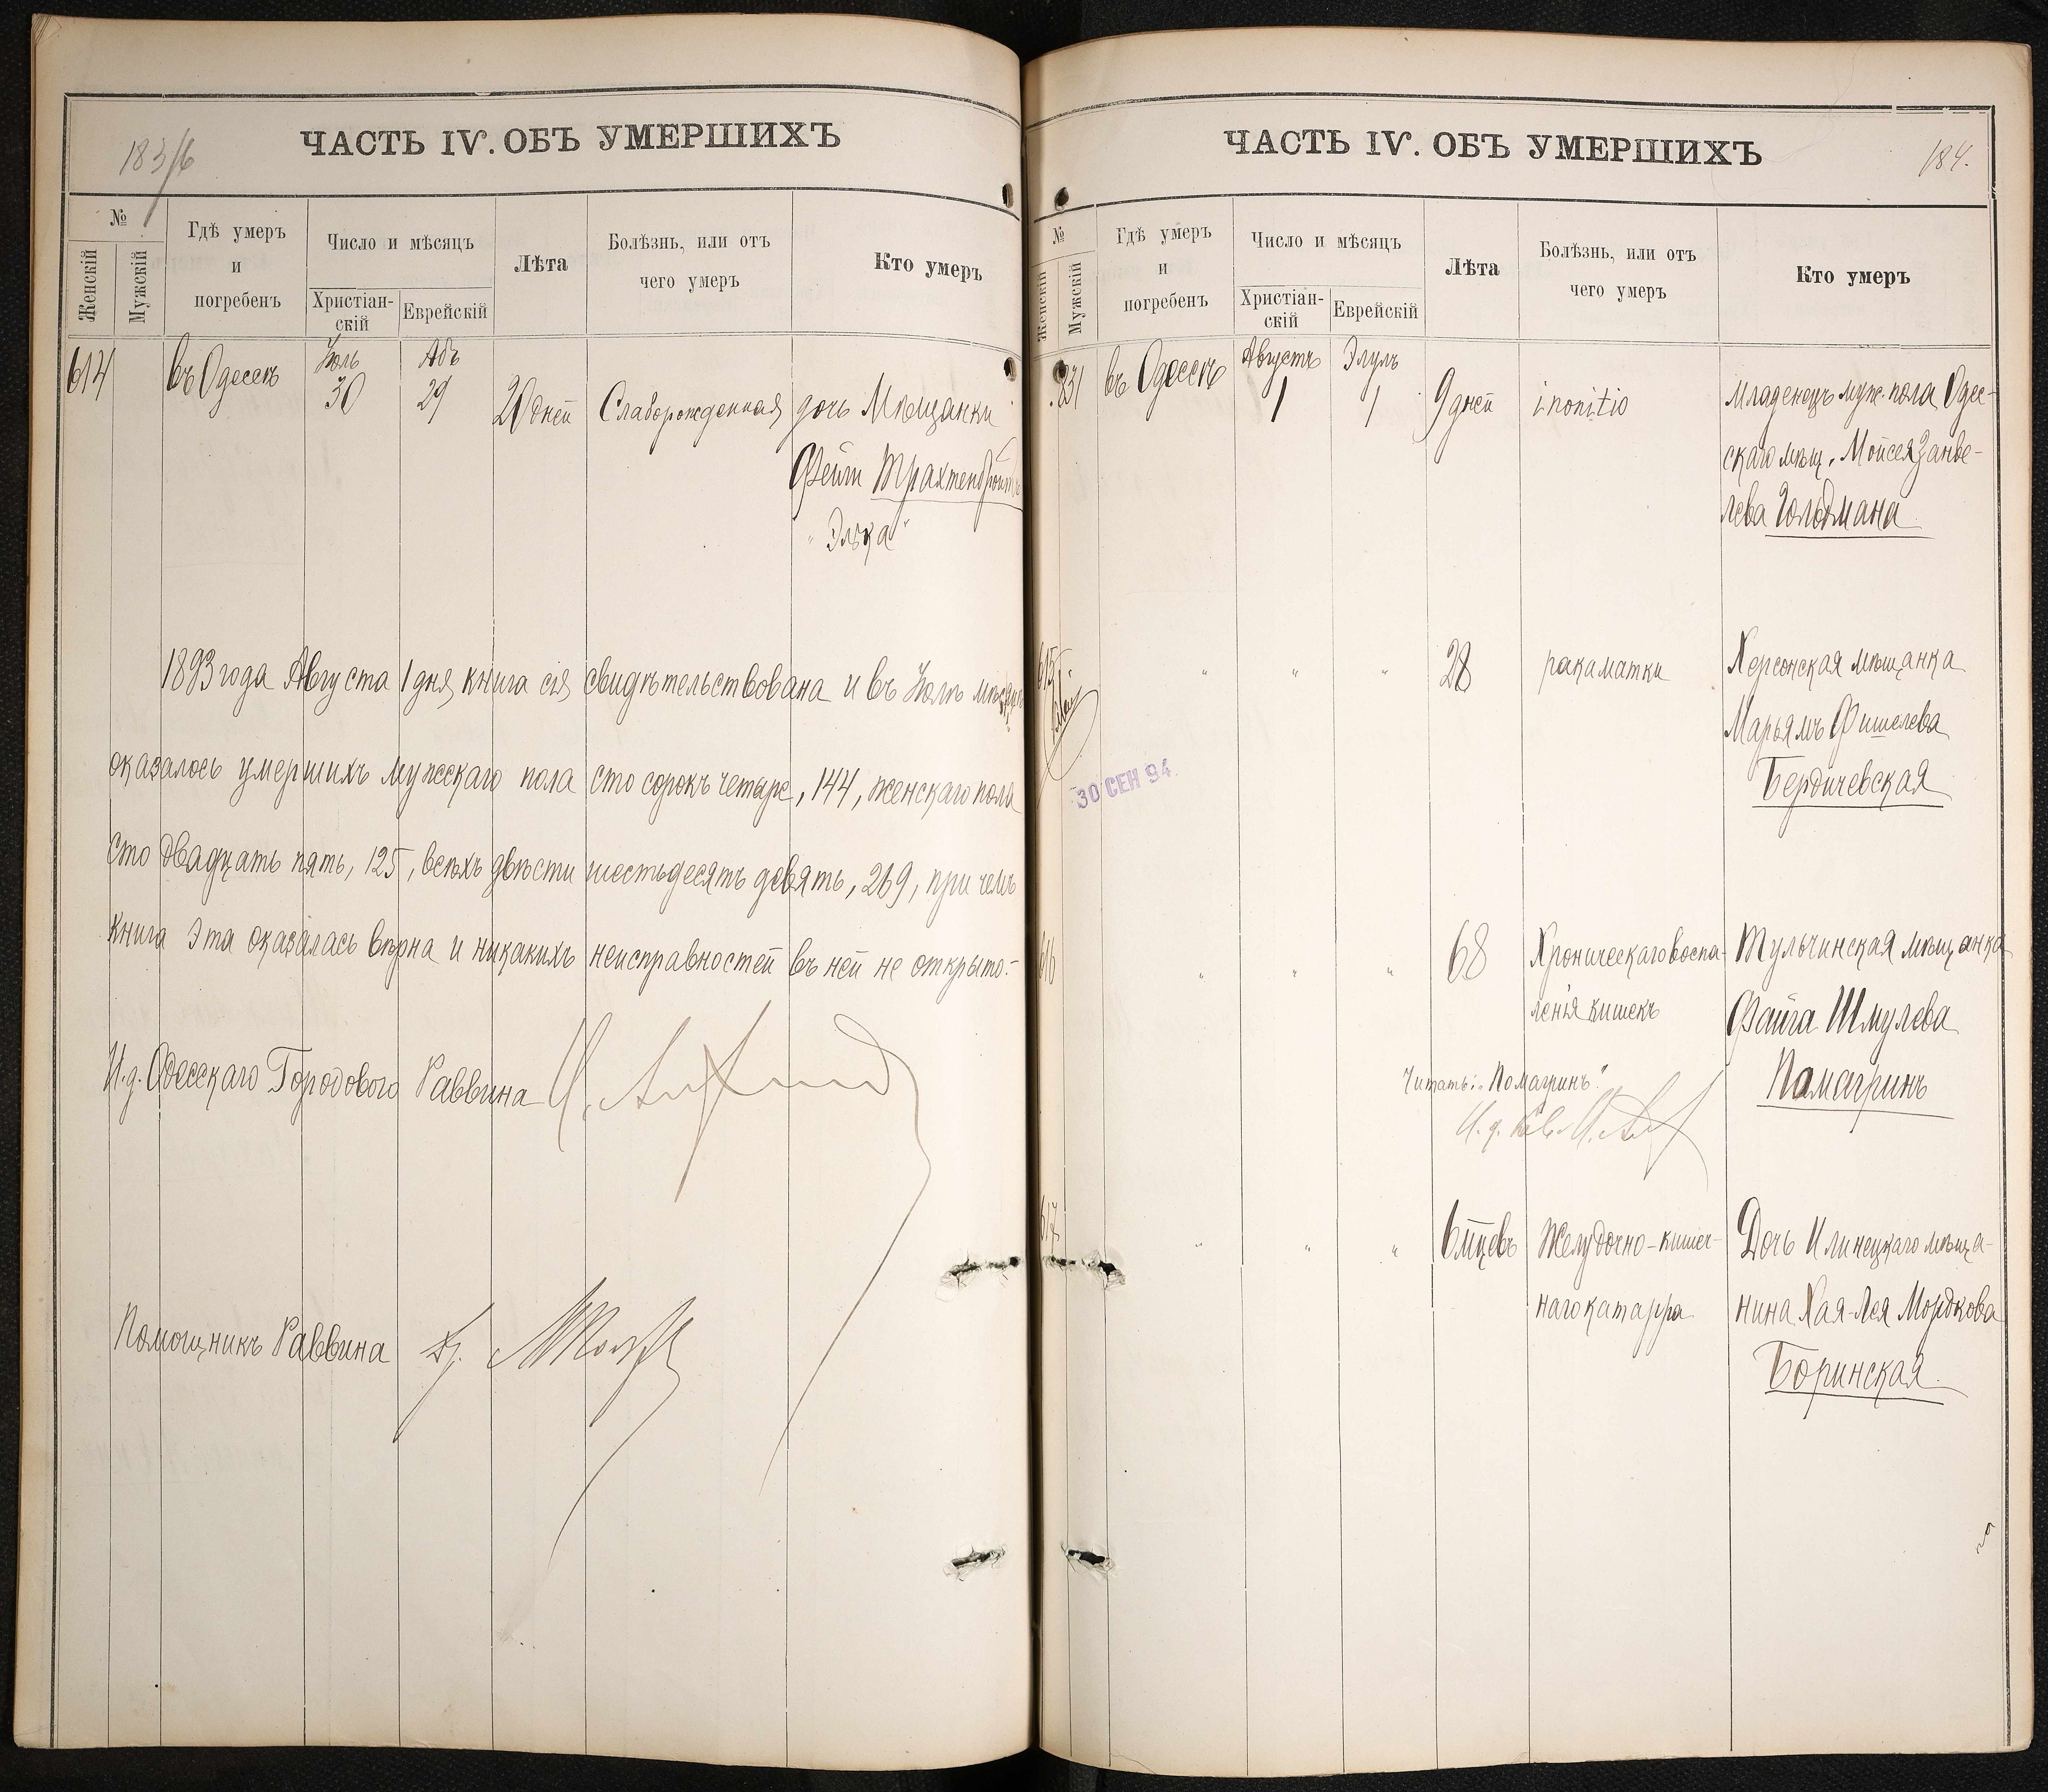 183/6
ЧАСТЬ IV. ОБЪ УМЕРШИХЪ
№
Женскій
Мужскій
Гдѣ умеръ
и
погребенъ
Число и мѣсяцъ
Христіан-
скій
Еврейскій
Лѣта
Болѣзнь, или отъ
чего умеръ
Кто умеръ
614
въ Одессѣ
Іюль
30
Абъ
29
20 дней
Слаборожденная
дочь Мѣщанки
Фейги
"Элька"
1893 года Августа 1 дня книга сія свидѣтельствована и въ Іюлѣ мѣсяцѣ
оказалось умершихъ мужескаго пола сто сорокъ четыре, 144, женскаго пола
сто двадцать пять, 125, всѣхъ двѣсти шестьдесятъ девять, 269, при чемъ
книга эта оказалась вѣрна и никакихъ неисправностей въ ней не открыто.-
И. д. Одесскаго Городового Раввина
Помощникъ Раввина
ЧАСТЬ IV. ОБЪ УМЕРШИХЪ
184.
№
Женскій
Мужскій
Гдѣ умеръ
и
погребенъ
Число и мѣсяцъ
Христіан-
скій
Еврейскій
Лѣта
Болѣзнь, или отъ
чего умеръ
Кто умеръ
831
въ Одессѣ
Августъ
1
Элулъ
1
9 дней
inonitio
Младенецъ муж. пола Одес-
скаго мѣщ. Мойсея Занве-
лева Гольдмана
615
"
"
"
28
рака матки
Херсонская мѣщанка
Марьямъ Фишелева
Бердичевская
30 СЕН 94
616
"
"
"
68
Хроническаго воспа-
ленія кишекъ
Тульчинская мѣщанка
Файга Шмулева
Памагринъ
Читать: "Помагринъ".
И. д. Рав.
617
"
"
"
6 мцевъ
Желудочно-кишеч-
наго катарра
Дочь Илинецкаго мѣща-
нина Хая-Лея Мордкова
Боринская.